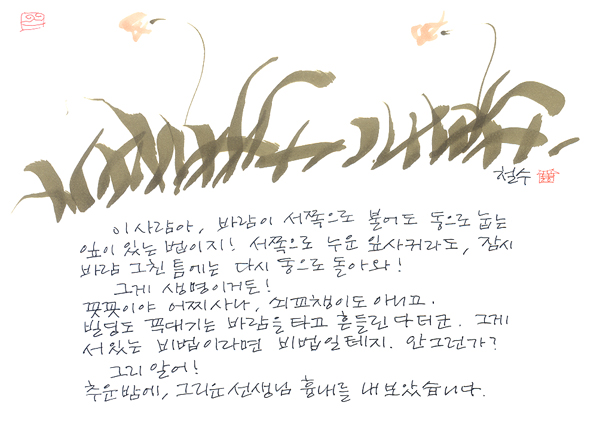 철수
이 사람아, 바람이 서쪽으로 불어도 동으로 눕는
잎이 있는 법이지! 서쪽으로 누운 잎사귀라도, 잠시
바람 그친 틈에는 다시 동으로 돌아와!
그게 생명이거든!
꼿꼿이야 어찌사나, 쇠꼬챙이도 아니고.
빌딩도 꼭대기는 바람을 타고 흔들린다더군. 그게
서있는 비법이라면 비법일테지. 안그런가?
그리 알어!
추운밤에, 그리운 선생님 흉내를 내보았습니다.